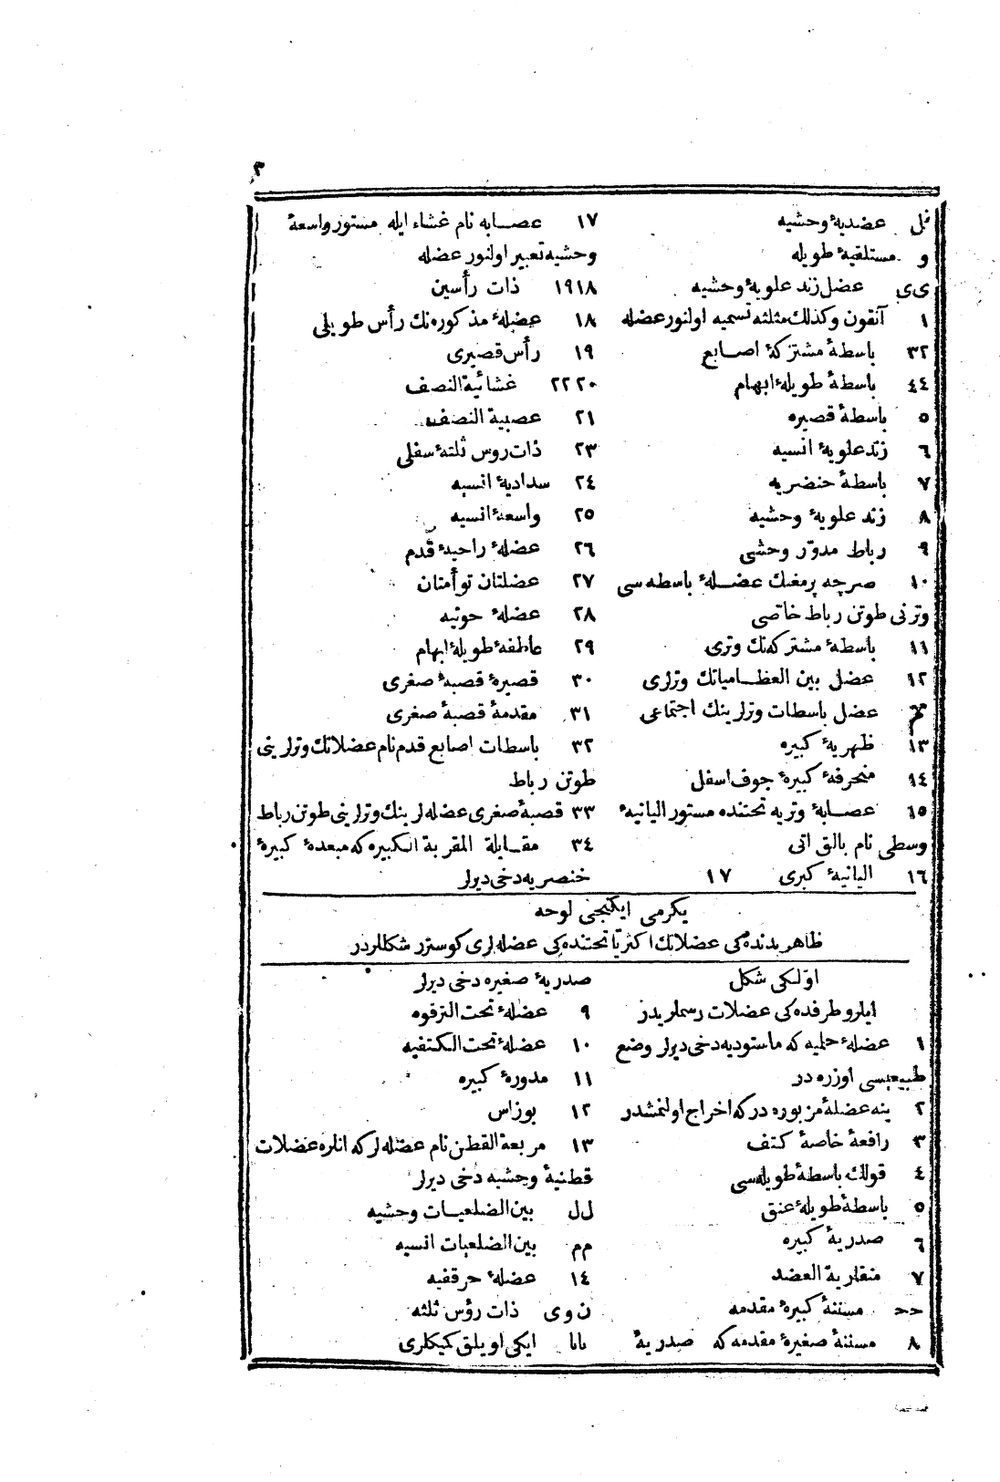 ٣
ڧل عضديهٔ وحشيه
و مستلقيهٔ طويله
ى‌ى عضل زند علويهٔ وحشيه
١ آنقون وكذلك مثلثه تسميه اولنور عضله
٣٢ باسطهٔ مشتركهٔ اصابع
٤٤ باسطهٔ طويلهٔ ابهام
٥ باسطهٔ قصيره
٦ زند علويهٔ انسيه
٧ باسطهٔ خنضريه
٨ زند علويهٔ وحشيه
٩ رباط مدوّر وحشى
١٠ صرچه پرمغك عضلهٔ باسطه سى
وترنى طوتن رباط خاصى
١١ باسطهٔ مشتركه‌نك وترى
١٢ عضل بين العظامياتك وترلرى
عضل باسطات وترلرينك اجتماعى
١٣ ظهريهٔ كبيره
١٤ منحرفهٔ كبيرهٔ جوف اسفل
١٥ عصابهٔ وتريه تحتنده مستور اليانيهٔ
وسطى نام بالق اتى
١٦ اليانيهٔ كبرى ١٧
١٧ عصابه نام غشاء ايله مستور واسعهٔ
وحشيه تعبير اولنور عضله
١٩١٨ ذات رأسين
١٨ عضلهٔ مذكوره‌نك رأس طويلى
١٩ رأس قصيرى
٢٢٢٠ غشائية النصف
٢١ عصبية النصف
٢٣ ذات روس ثلثهٔ سفلى
٢٤ سداديهٔ انسيه
٢٥ واسعهٔ انسيه
٢٦ عضلهٔ راحيهٔ قدم
٢٧ عضلتان توأمتان
٢٨ عضلهٔ حوتيه
٢٩ عاطفهٔ طويلهٔ ابهام
٣٠ قصيرهٔ قصبهٔ صغرى
٣١ مقدمهٔ قصبهٔ صغرى
٣٢ باسطات اصابع قدم نام عضلاتك وترلرينى
طوتن رباط
٣٣ قصبهٔ صغرى عضله‌لرينك وترلرينى طوتن رباط
٣٤ مقابلة المقربة الكبيره كه مبعدهٔ كبيرهٔ
خنصريه دخى ديرلر
يكرمى ايكنجى لوحه
ظاهر بدنده‌كى عضلاتك اكثريّا تحتنده‌كى عضله‌لرى كوسترر شكللردر
اوّلكى شكل
ايلرو طرفده‌كى عضلات رسملريدر
١ عضلهٔ حلميه كه ماستوديه دخى ديرلر وضع
طبيعيسى اوزره در
٢ ينه عضلهٔ مزبوره در كه اخراج اولنمشدر
٣ رافعهٔ خاصهٔ كتف
٤ قولك باسطهٔ طويله‌سى
٥ باسطهٔ طويلهٔ عنق
٦ صدريهٔ كبيره
٧ منقارية العضد
حح مسننهٔ كبيرهٔ مقدمه
٨ مسننهٔ صغيرهٔ مقدمه كه صدريهٔ
صدريهٔ صغيره دخى ديرلر
٩ عضلهٔ تحت الترقوه
١٠ عضلهٔ تحت الكتفيه
١١ مدورهٔ كبيره
١٢ پوزاس
١٣ مربعة القطن نام عضله‌لر كه انلره عضلات
قطنيهٔ وحشيه دخى ديرلر
لل بين الضلعيات وحشيه
مم بين الضلعيات انسيه
١٤ عضلهٔ حرقفيه
ن و ى ذات رؤس ثلثه
ايكى اويلق كميكلرى